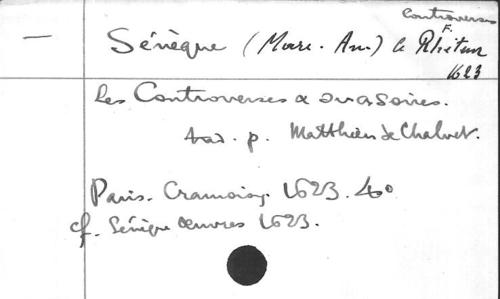 Controverses
F.
— Sénèque (Marc. Ann.) le Rhéteur
1623
Les Controverses & suasoires.
trad. p. Matthieu de Chalvet.
Paris. Cramoisy. 1623. 4o
cf. Sénèque œuvres 1623.